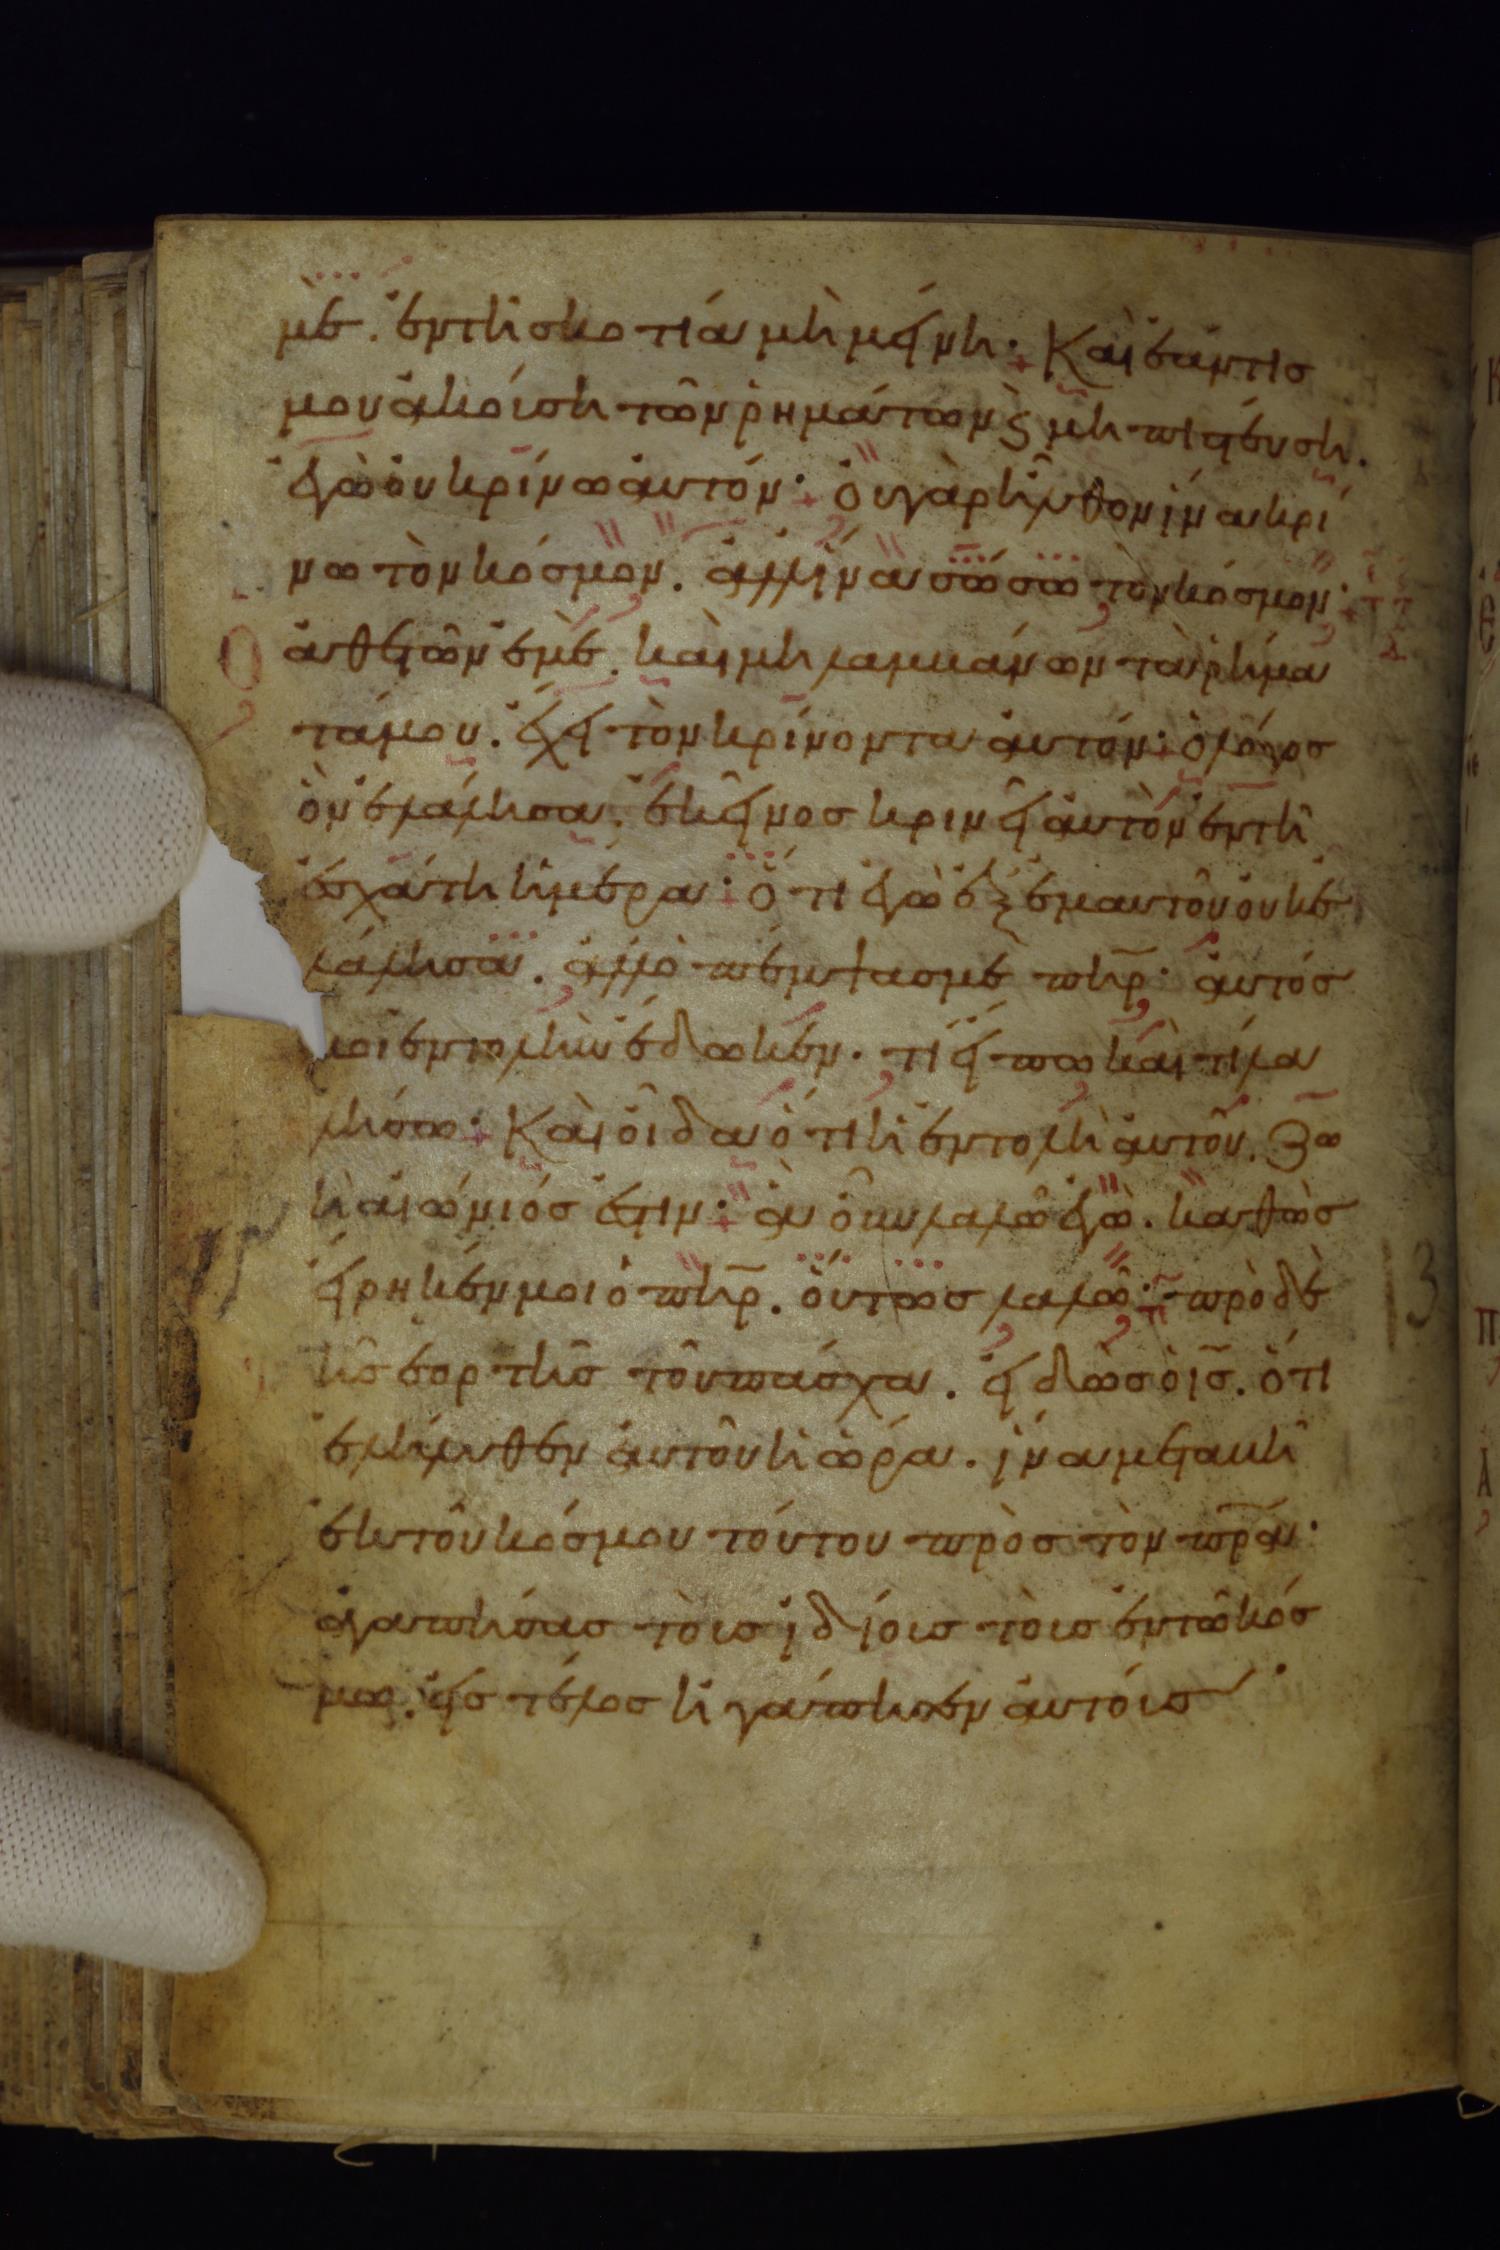 μὲ. ἐν τῆ σκοτία μὴ μείνη· Καὶ ἐάν τις
μου ἀκούση τῶν ῥημάτων ϛ μὴ πιστεύση.
ἐγὼ οὐ κρίνω αὐτόν· οὐ γὰρ ἦλθον ἵνα κρί
νω τὸν κόσμον. ἀλλ' ἵνα σώσω τὸν κόσμον·
Ὁ ἀθετῶν ἐμὲ. καὶ μὴ λαμβάνων τὰ ῥήμα
τά μου. ἔχει τὸν κρίνοντα αὐτόν· ὁ λόγος
ὃν ἐλάλησα. ἐκεῖνος κρινεῖ αὐτὸν ἐν τῆ
ἐσχάτη ἡμέρα· Ὅτι ἐγὼ ἐξ ἐμαυτοῦ οὐκ ἐ
λάλησα. ἀλλ' ὁ πέμψας με πηρ· αὐτός
μοι ἐντολὴν ἔδωκεν. τί εἴπω καὶ τί λα
λήσω· Καὶ οἶδα ὅτι ἡ ἐντολὴ αὐτοῦ. ζω
ὴ αἰώνιός ἐστιν· ἃ οὖν λαλῶ ἐγὼ. καθὼς
εἴρηκέν μοι ὁ πηρ. οὕτως λαλῶ· πρὸ δὲ
τῆς ἑορτῆς τοῦ πάσχα. εἰδὼς ὁ ις. ὅτι
ἐλήλυθεν αὐτοῦ ἡ ὥρα. ἵνα μεταβῆ
ἐκ τοῦ κόσμου τούτου πρὸς τὸν πρα·
ἀγαπήσας τοὶς ἰδίοις τοὶς ἐν τῶ κόσ
μω. εἰς τέλος ἠγάπησεν αὐτοίς